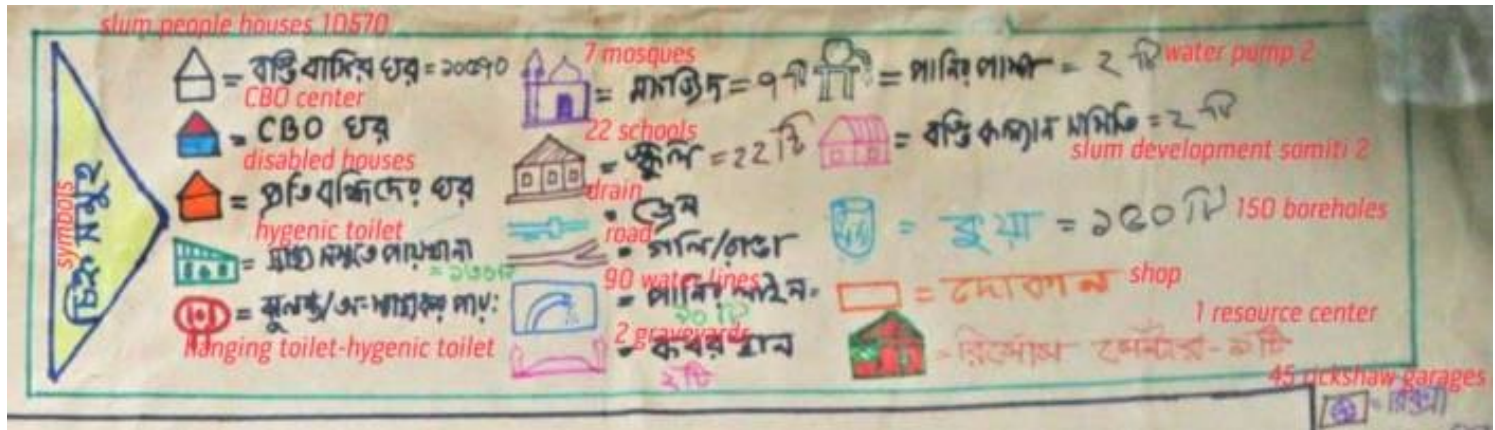 slum people houses 10570
= বস্তি বাসির ঘর = ১০৫৭০
CBO center
= CBO ঘর
disabled houses
= প্রতিবন্ধিদের ঘর
hygenic toilet
= স্বাস্থ্য সম্মত পায়খানা
= ঝুলন্ত/অ-স্বাস্থ্যকর পায়:
hanging toilet-hygenic toilet
symbols
চিহ্ন সমূহ
7 mosques
= মসজিদ = ৭ টি
22 schools
= স্কুল = 22 টি
drain
= ড্রেন
road
= গলি/রাস্তা
90 water lines
= পানির লাইন=
৯০ টি
2 graveyards
= কবর স্থান
২টি
water pump 2
= পানির পাম্প = ২ টি
= বস্তি কল্যান সমিতি = ২ টি
slum development somiti 2
= কুয়া = ১৫০ টি
150 boreholes
= দোকান
shop
1 resource center
= রিসোর্স সেন্টার-১টি
45 rickshaw garages
= রিক্সা